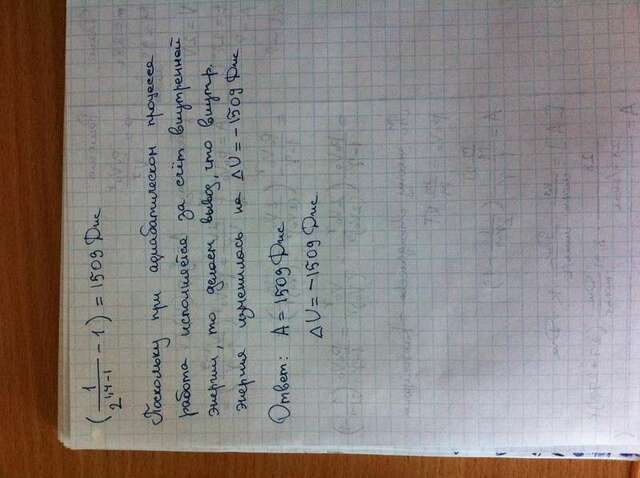 (1/2^1,4-1 - 1) = 1509 Дж
Поскольку при адиабатическом процессе
работа исполняется за счёт внутренней
энергии, то делаем вывод, что внутр.
энергия изменилась на ΔU = -1509 Дж
Ответ: A = 1509 Дж
ΔU = -1509 Дж